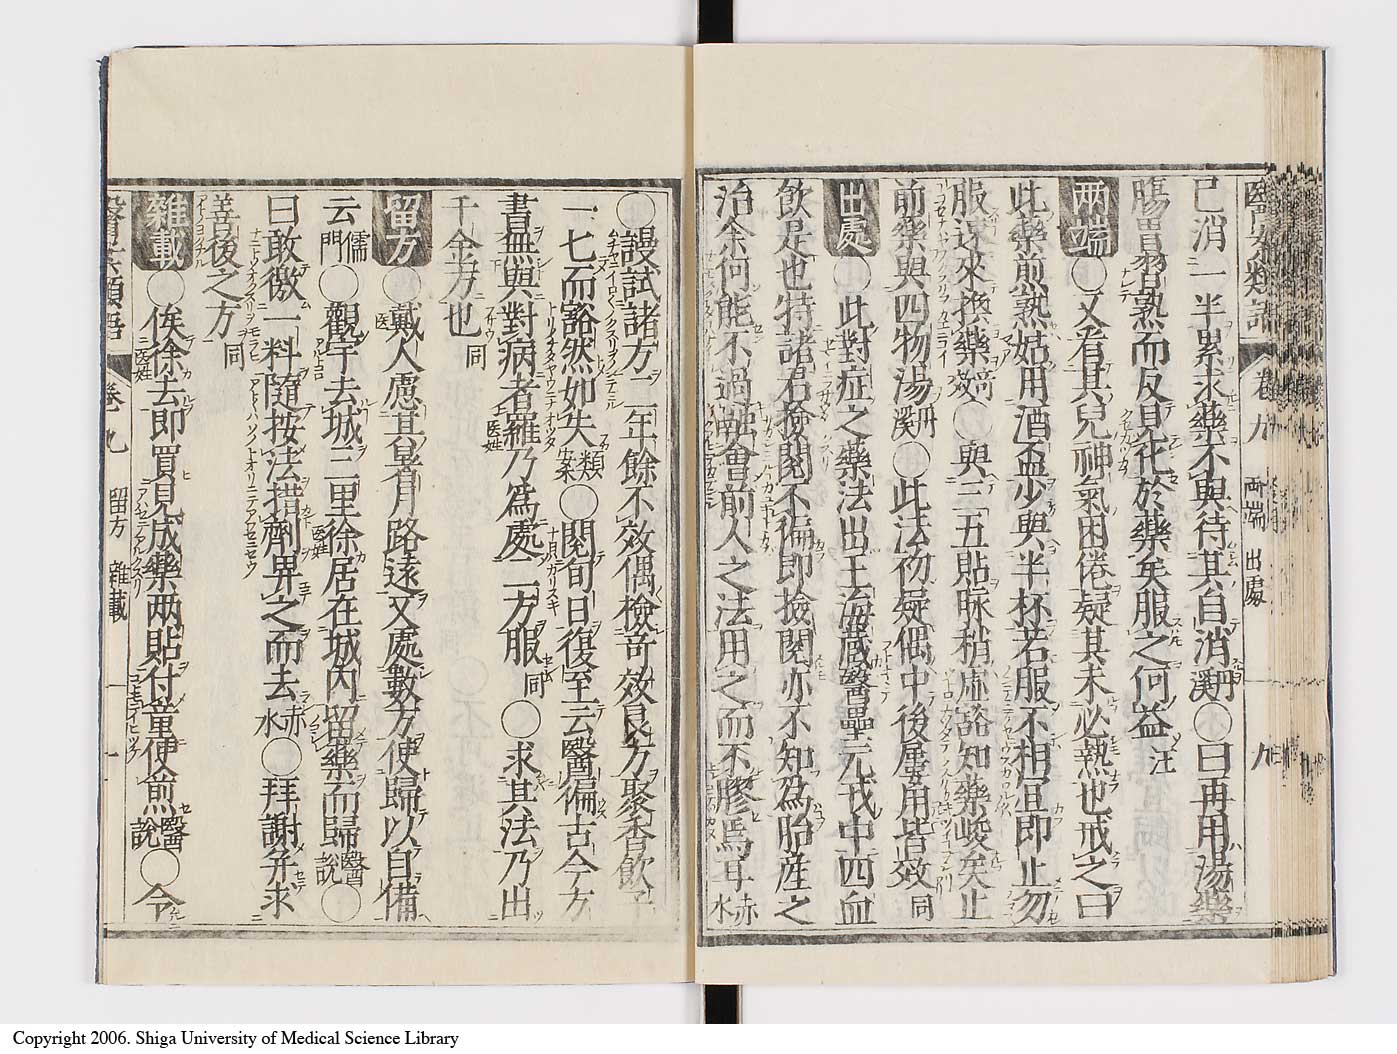 已消一半累求藥不與待其自消丹溪○曰再用湯藥
腸胃習熟而反見化於藥矣服之何益汪
兩端○又看其兒神氣困倦疑其未必熱也戒之曰
此藥煎熟姑用酒盃少與半杯若服不相宜即止勿
服速來換藥效竒○與三五貼脉稍虚豁知藥峻矣止
前藥與四物湯丹溪○此法初疑偶中後屢用皆效同
出處○此對症之藥法出王海藏醫壘元戎中四血
飲是也特諸君撿閱不徧即撿閱亦不知為胎產之
治余何能不過融會前人之法用之而不膠焉耳赤水
醫案類語 卷九 兩端 出處 九
○謾試諸方二年餘不效偶檢竒效良方聚香飲子
一七而豁然如失類案○閱旬日復至云醫徧古今方
書無與對病者羅乃為處二方服同○求其法乃出
千金方也同
留方○戴人慮其暑月路遠又處數方使歸以自備
云儒門○觀宇去城三里徐居在城內留藥而歸醫說○
曰敢徼一料隨按法措劑畀之而去赤水○拜謝并求
善後之方同
雜載○俟徐去即買見成藥兩貼付童使煎醫說○令
醫案類語 卷九 留方 雜載
Copyright 2006. Shiga University of Medical Science Library